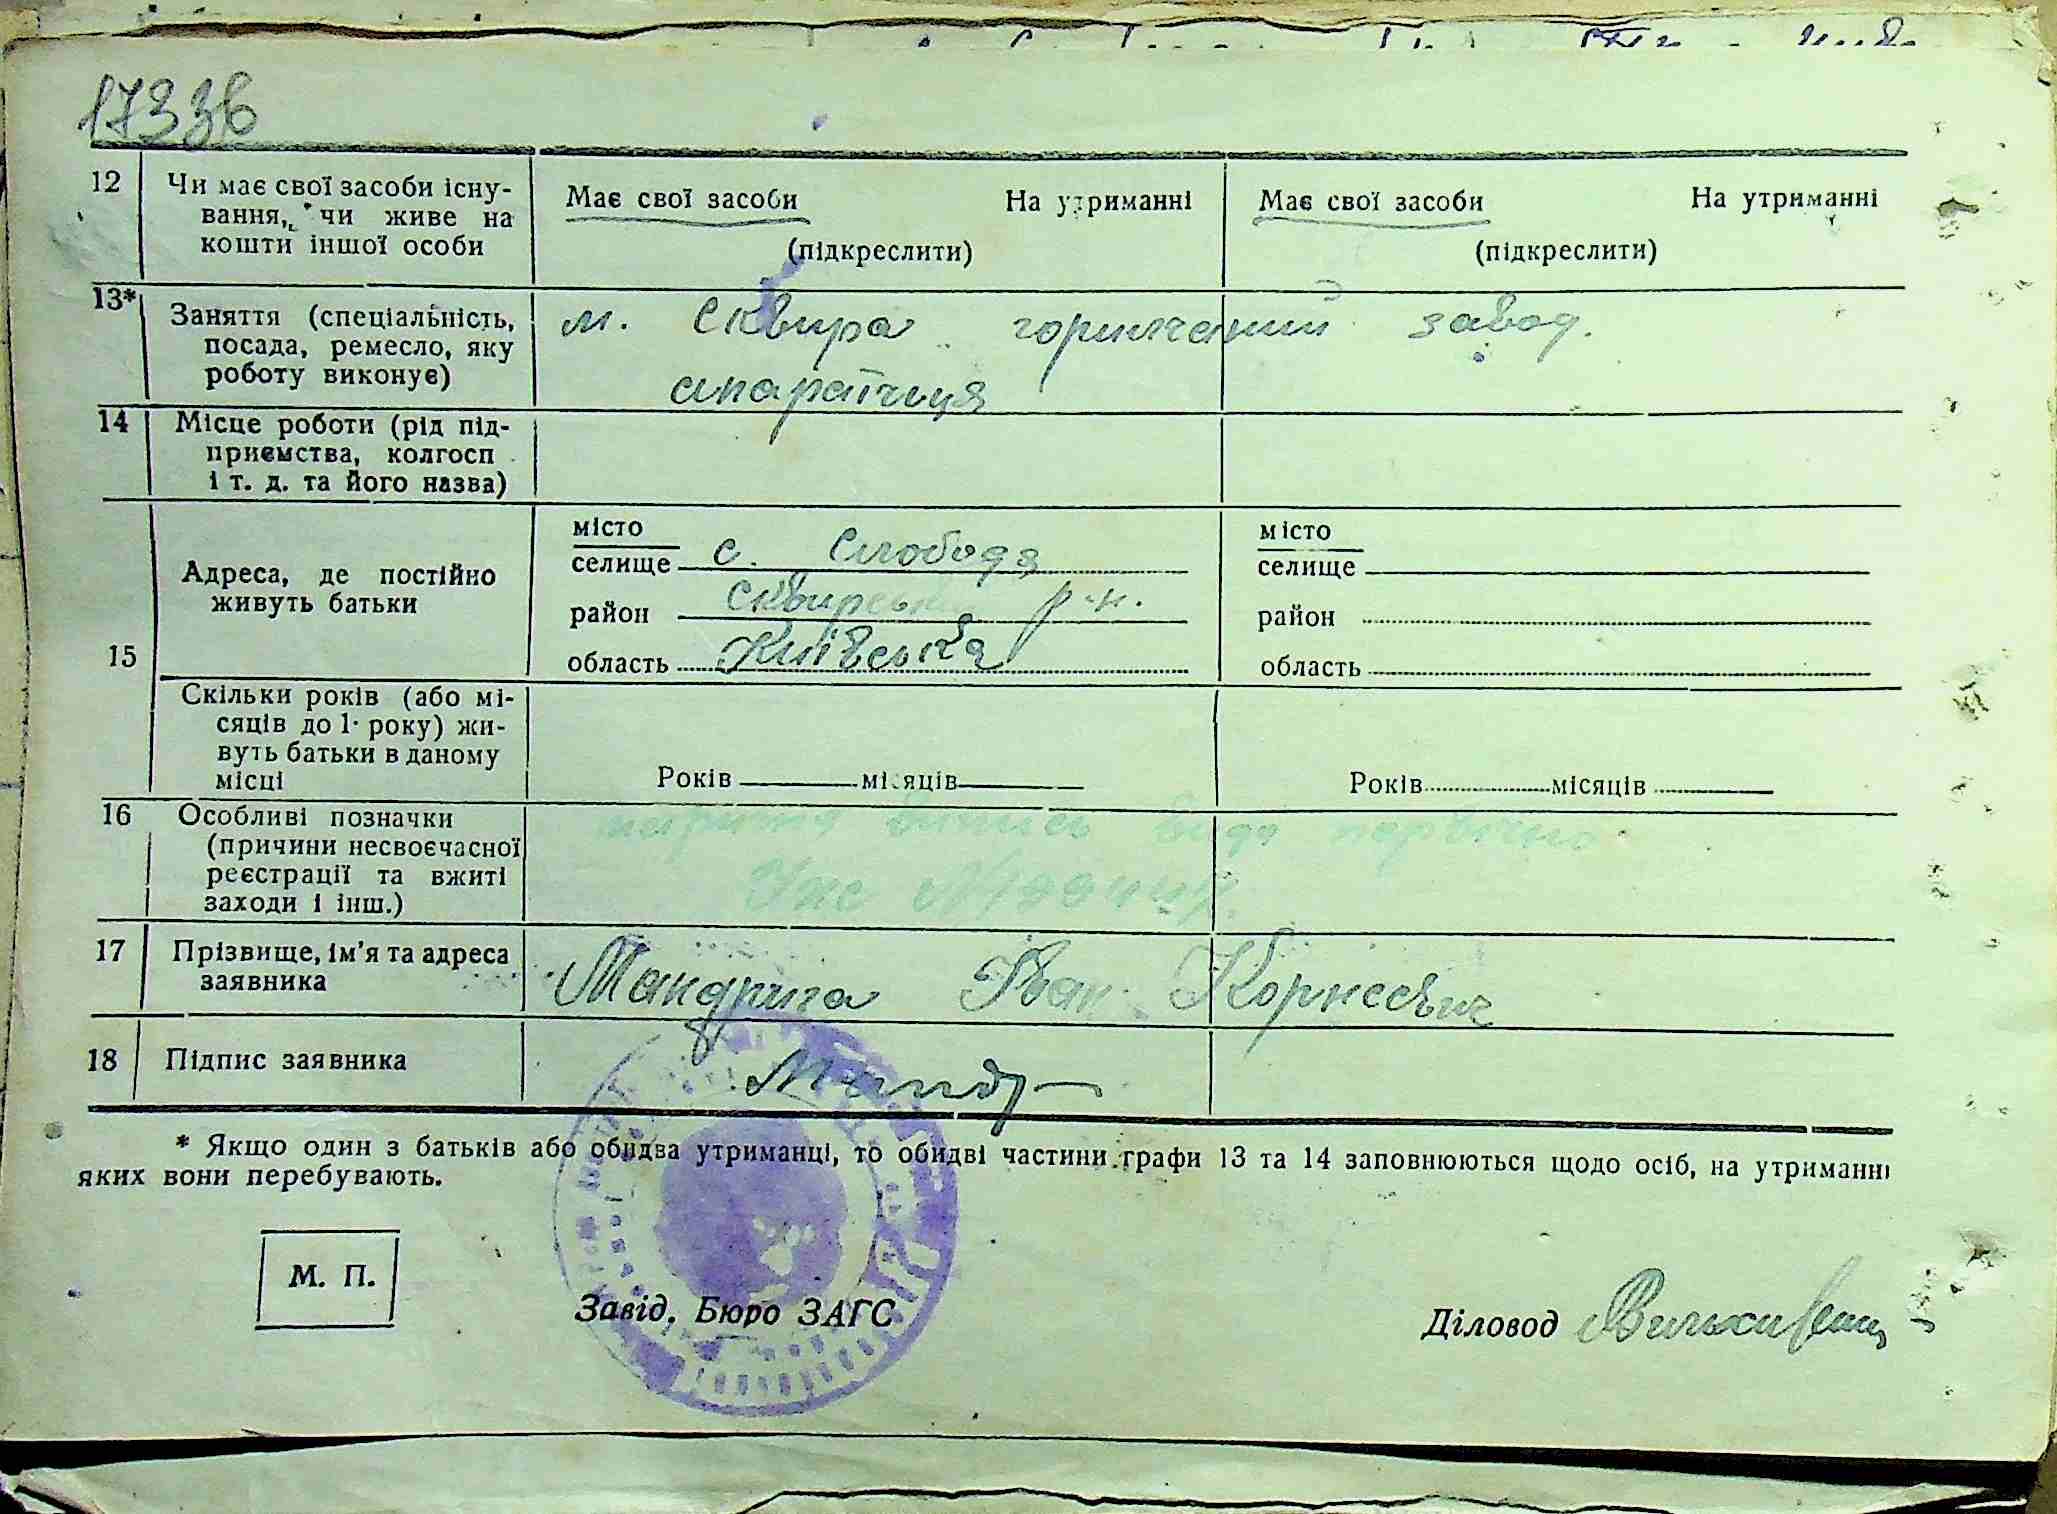 1733в
12 Чи має свої засоби існу-
вання, чи живе на
кошти іншої особи
Має свої засоби На утриманні
(підкреслити)
Має свої засоби На утриманні
(підкреслити)
13* Заняття (спеціальність,
посада, ремесло, яку
роботу виконує)
м. Сквира горілчаний завод.
апаратчиця
14 Місце роботи (рід під-
приємства, колгосп
і т. д. та його назва)
15 Адреса, де постійно
живуть батьки
місто
селище с. Слобода
район Сквирський р-н.
область Київська
місто
селище
район
область
Скільки років (або мі-
сяців до 1 року) жи-
вуть батьки в даному
місці
Років місяців
Років місяців
16 Особливі позначки
(причини несвоєчасної
реєстрації та вжиті
заходи і інш.)
17 Прізвище, ім'я та адреса
заявника
Мандрига Іван Корнєєвич
18 Підпис заявника
Манд
* Якщо один з батьків або обидва утриманці, то обидві частини графи 13 та 14 заповнюються щодо осіб, на утриманні
яких вони перебувають.
М. П.
Завід. Бюро ЗАГС
Діловод